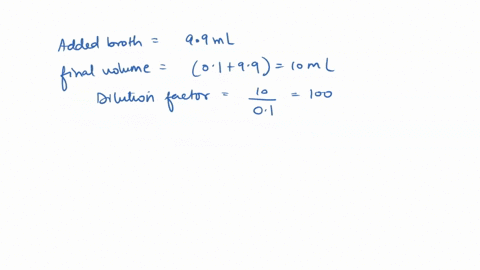 Added broth = 9.9 mL
final volume = (0.1 + 9.9) = 10 mL
Dilution factor = 10/0.1 = 100